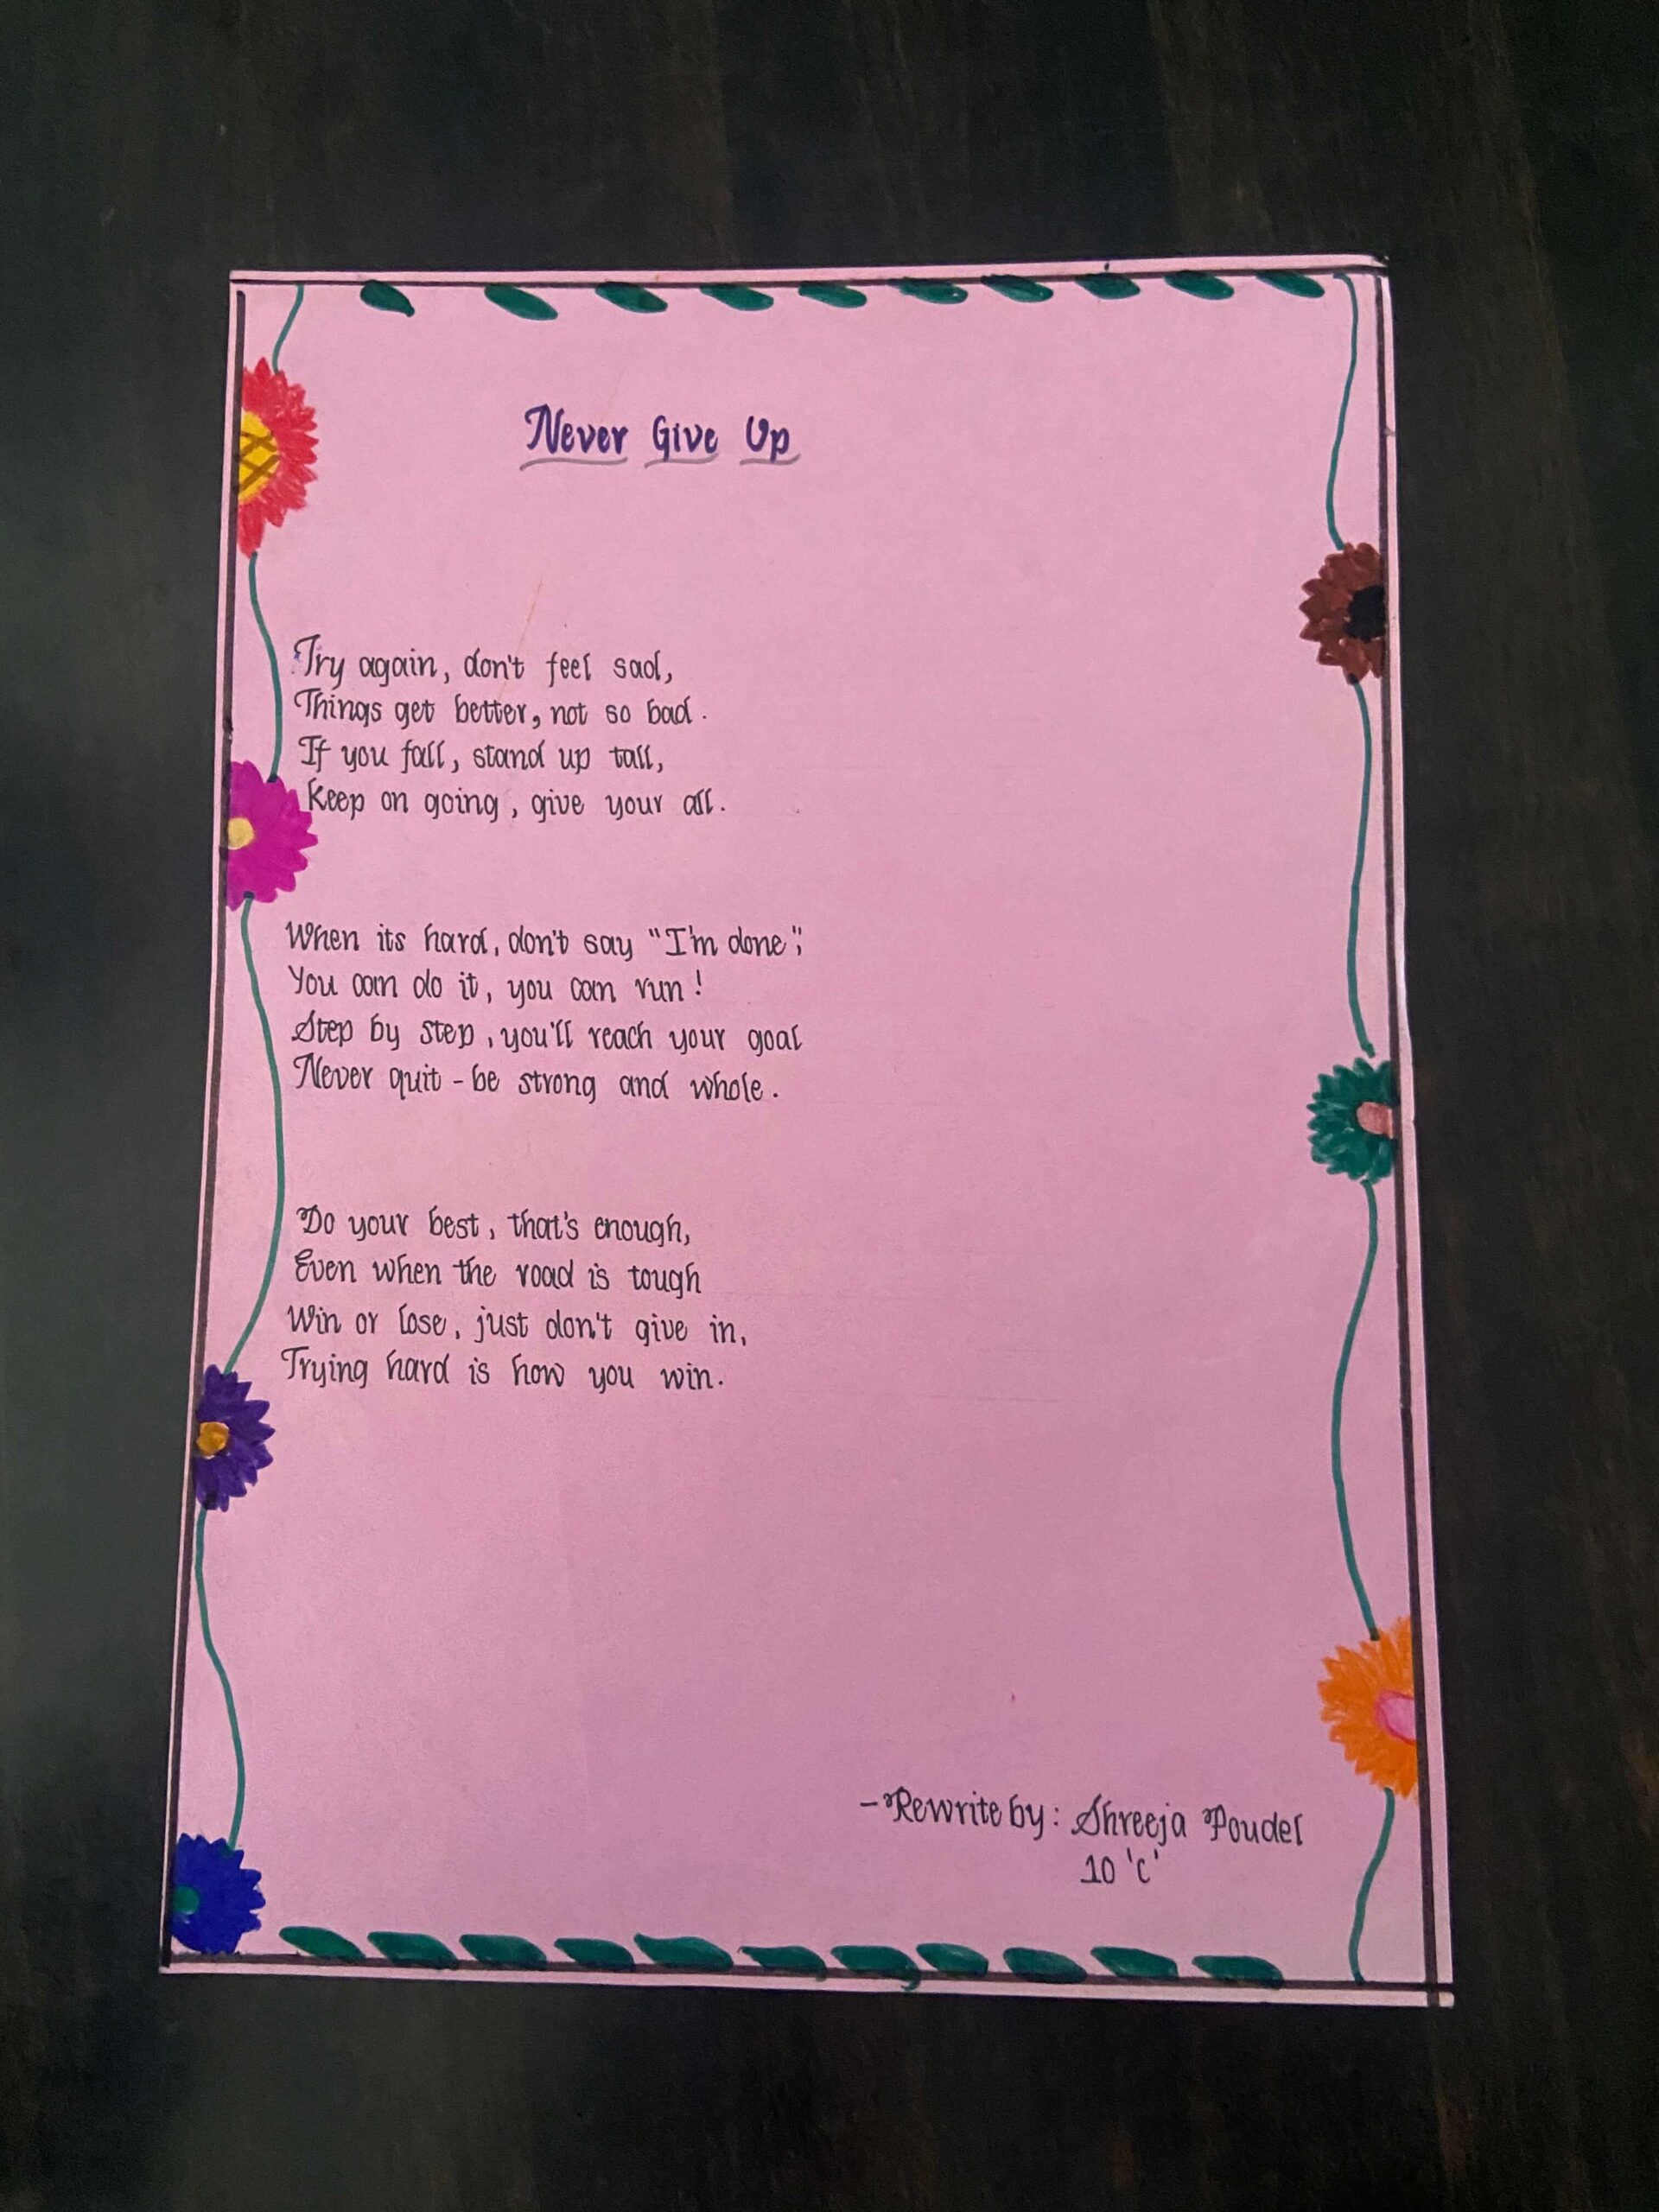 Never Give Up
Try again, don't feel sad,
Things get better, not so bad.
If you fall, stand up tall,
Keep on going, give your all.
When its hard, don't say "I'm done",
You can do it, you can run!
Step by step, you'll reach your goal
Never quit - be strong and whole.
Do your best, that's enough,
Even when the road is tough
Win or lose, just don't give in,
Trying hard is how you win.
- Rewrite by: Shreeja Poudel
10 'C'